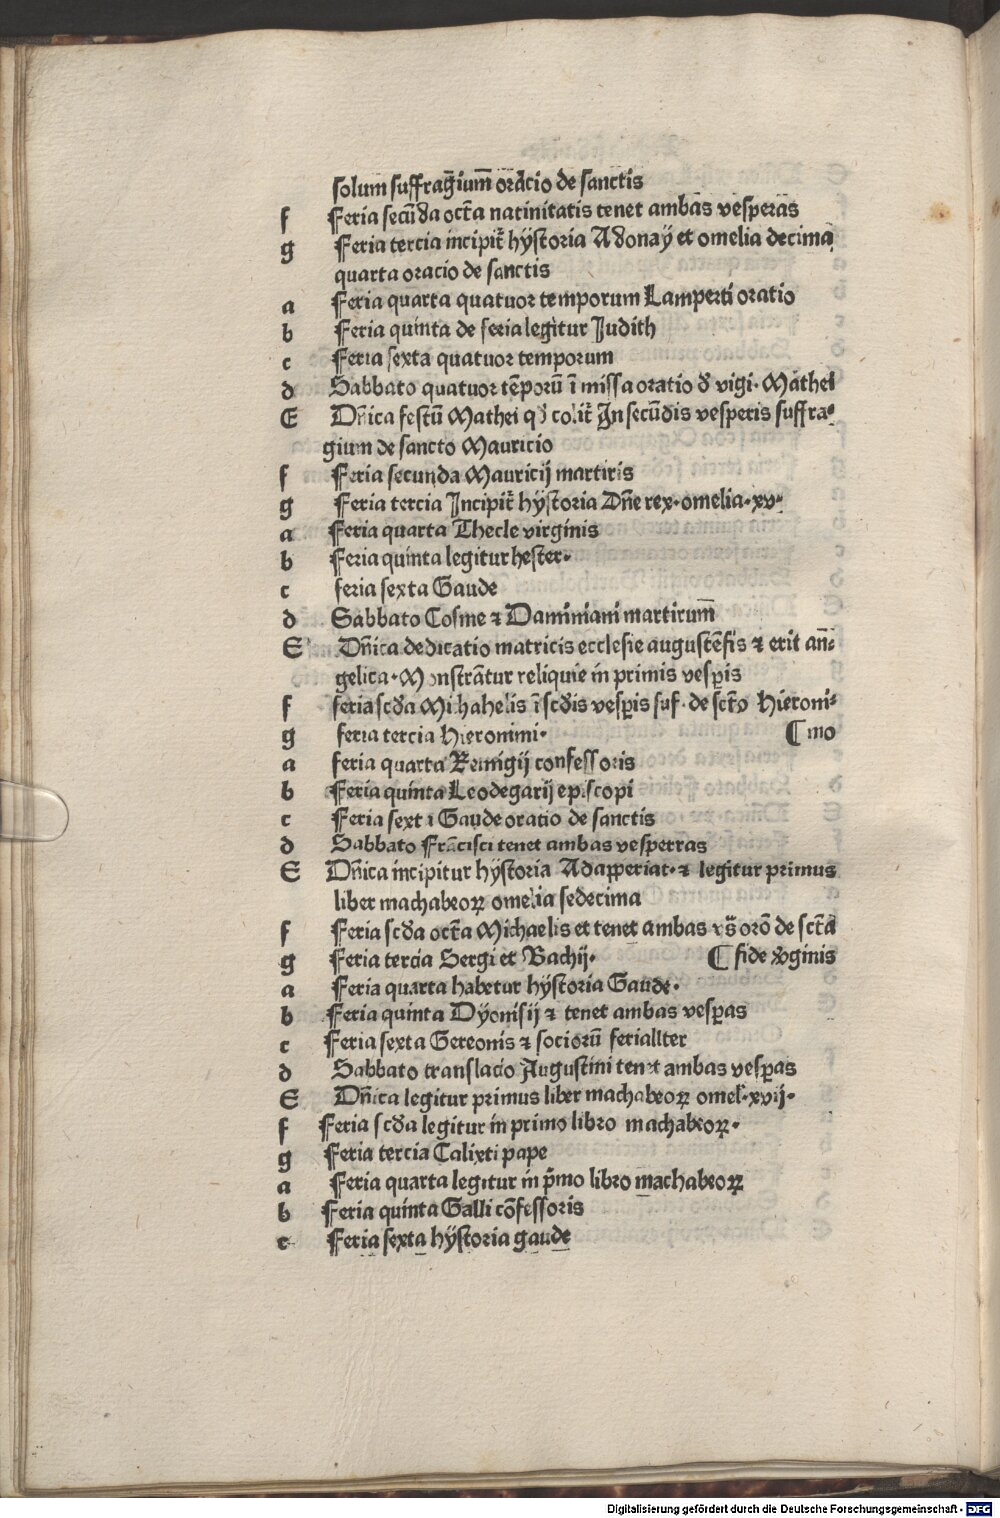 solum suffragium oracio de sanctis
f Feria secūda octa natiuitatis tenet ambas vesperas
g Feria tercia incipit hystoria Adonay et omelia decima
quarta oracio de sanctis
a Feria quarta quatuor temporum Lamperti oratio
b Feria quinta de feria legitur Judith
c Feria sexta quatuor temporum
d Sabbato quatuor tēporū ī missa oratio d vigi. Mathei
E Dn̄ica festū Mathei colit In secūdis vesperis suffra⸗
gium de sancto Mauricio
f Feria secunda Mauricij martiris
g Feria tercia Incipit hystoria Dn̄e rex. omelia. xv.
a Feria quarta Thecle virginis
b Feria quinta legitur hester.
c feria sexta Gaude
d Sabbato Cosme ⁊ Daminiani martirum
E Dn̄ica dedicatio matricis ecclesie augustēsis ⁊ erit an⸗
gelica. Monstrātur reliquie in primis vespis
f feria scd̄a Michahelis ī scd̄is vespis suf. de sctō Hieroni⸗
g feria tercia Hieronimi. ¶ mo
a feria quarta Remigij confessoris
b Feria quinta Leodegarij episcopi
c Feria sexta Gaude oratio de sanctis
d Sabbato Francisci tenet ambas vesperras
E Dn̄ica incipitur hystoria Adapperiat. ⁊ legitur primus
liber machabeoꝝ omelia sedecima
f Feria scd̄a octa Michaelis et tenet ambas vs̄ orō de sctā
g Feria tercia Sergi et Bachij. ¶ fide v̄ginis
a Feria quarta habetur hystoria Gaude.
b Feria quinta Dyonisij ⁊ tenet ambas vespas
c Feria sexta Gereonis ⁊ sociorū feriallter
d Sabbato translacio Augustini tenet ambas vespas
E Dn̄ica legitur primus liber machabeoꝝ omel. xvij.
f Feria scd̄a legitur in primo libro machabeoꝝ.
g Feria tercia Calixti pape
a Feria quarta legitur in p̄mo libro machabeoꝝ
b Feria quinta Galli cōfessoris
c Feria sexta hystoria gaude
Digitalisierung gefördert durch die Deutsche Forschungsgemeinschaft - DFG